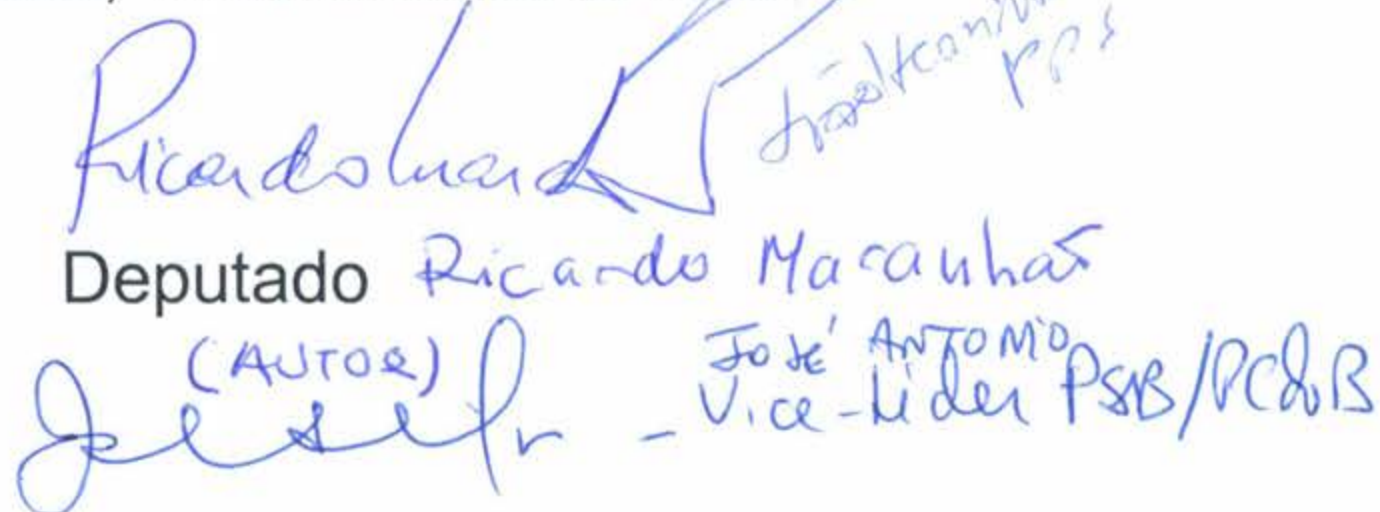 PPS
Deputado Ricardo Maranhão
(AUTOR)
JOSÉ ANTONIO
- Vice-Líder PSB/PCdoB